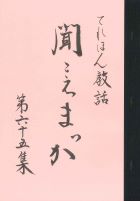 てれほん教話
聞こえまっか
第六十五集